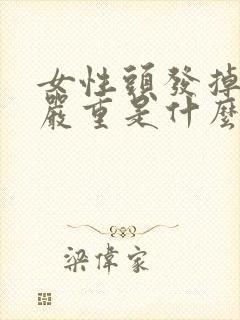 女性頭發掉
嚴重是什麼
梁偉家